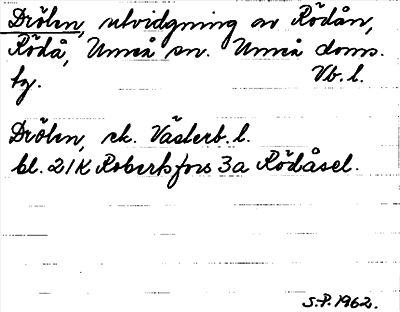 Drölen, utvidgning av Rödån,
Rödå, Umeå sn. Umeå doms.
tg. Vb. l.
Drölen, ek. Västerb. l.
bl. 21K Robertsfors 3a Rödåsel.
S.P. 1962.